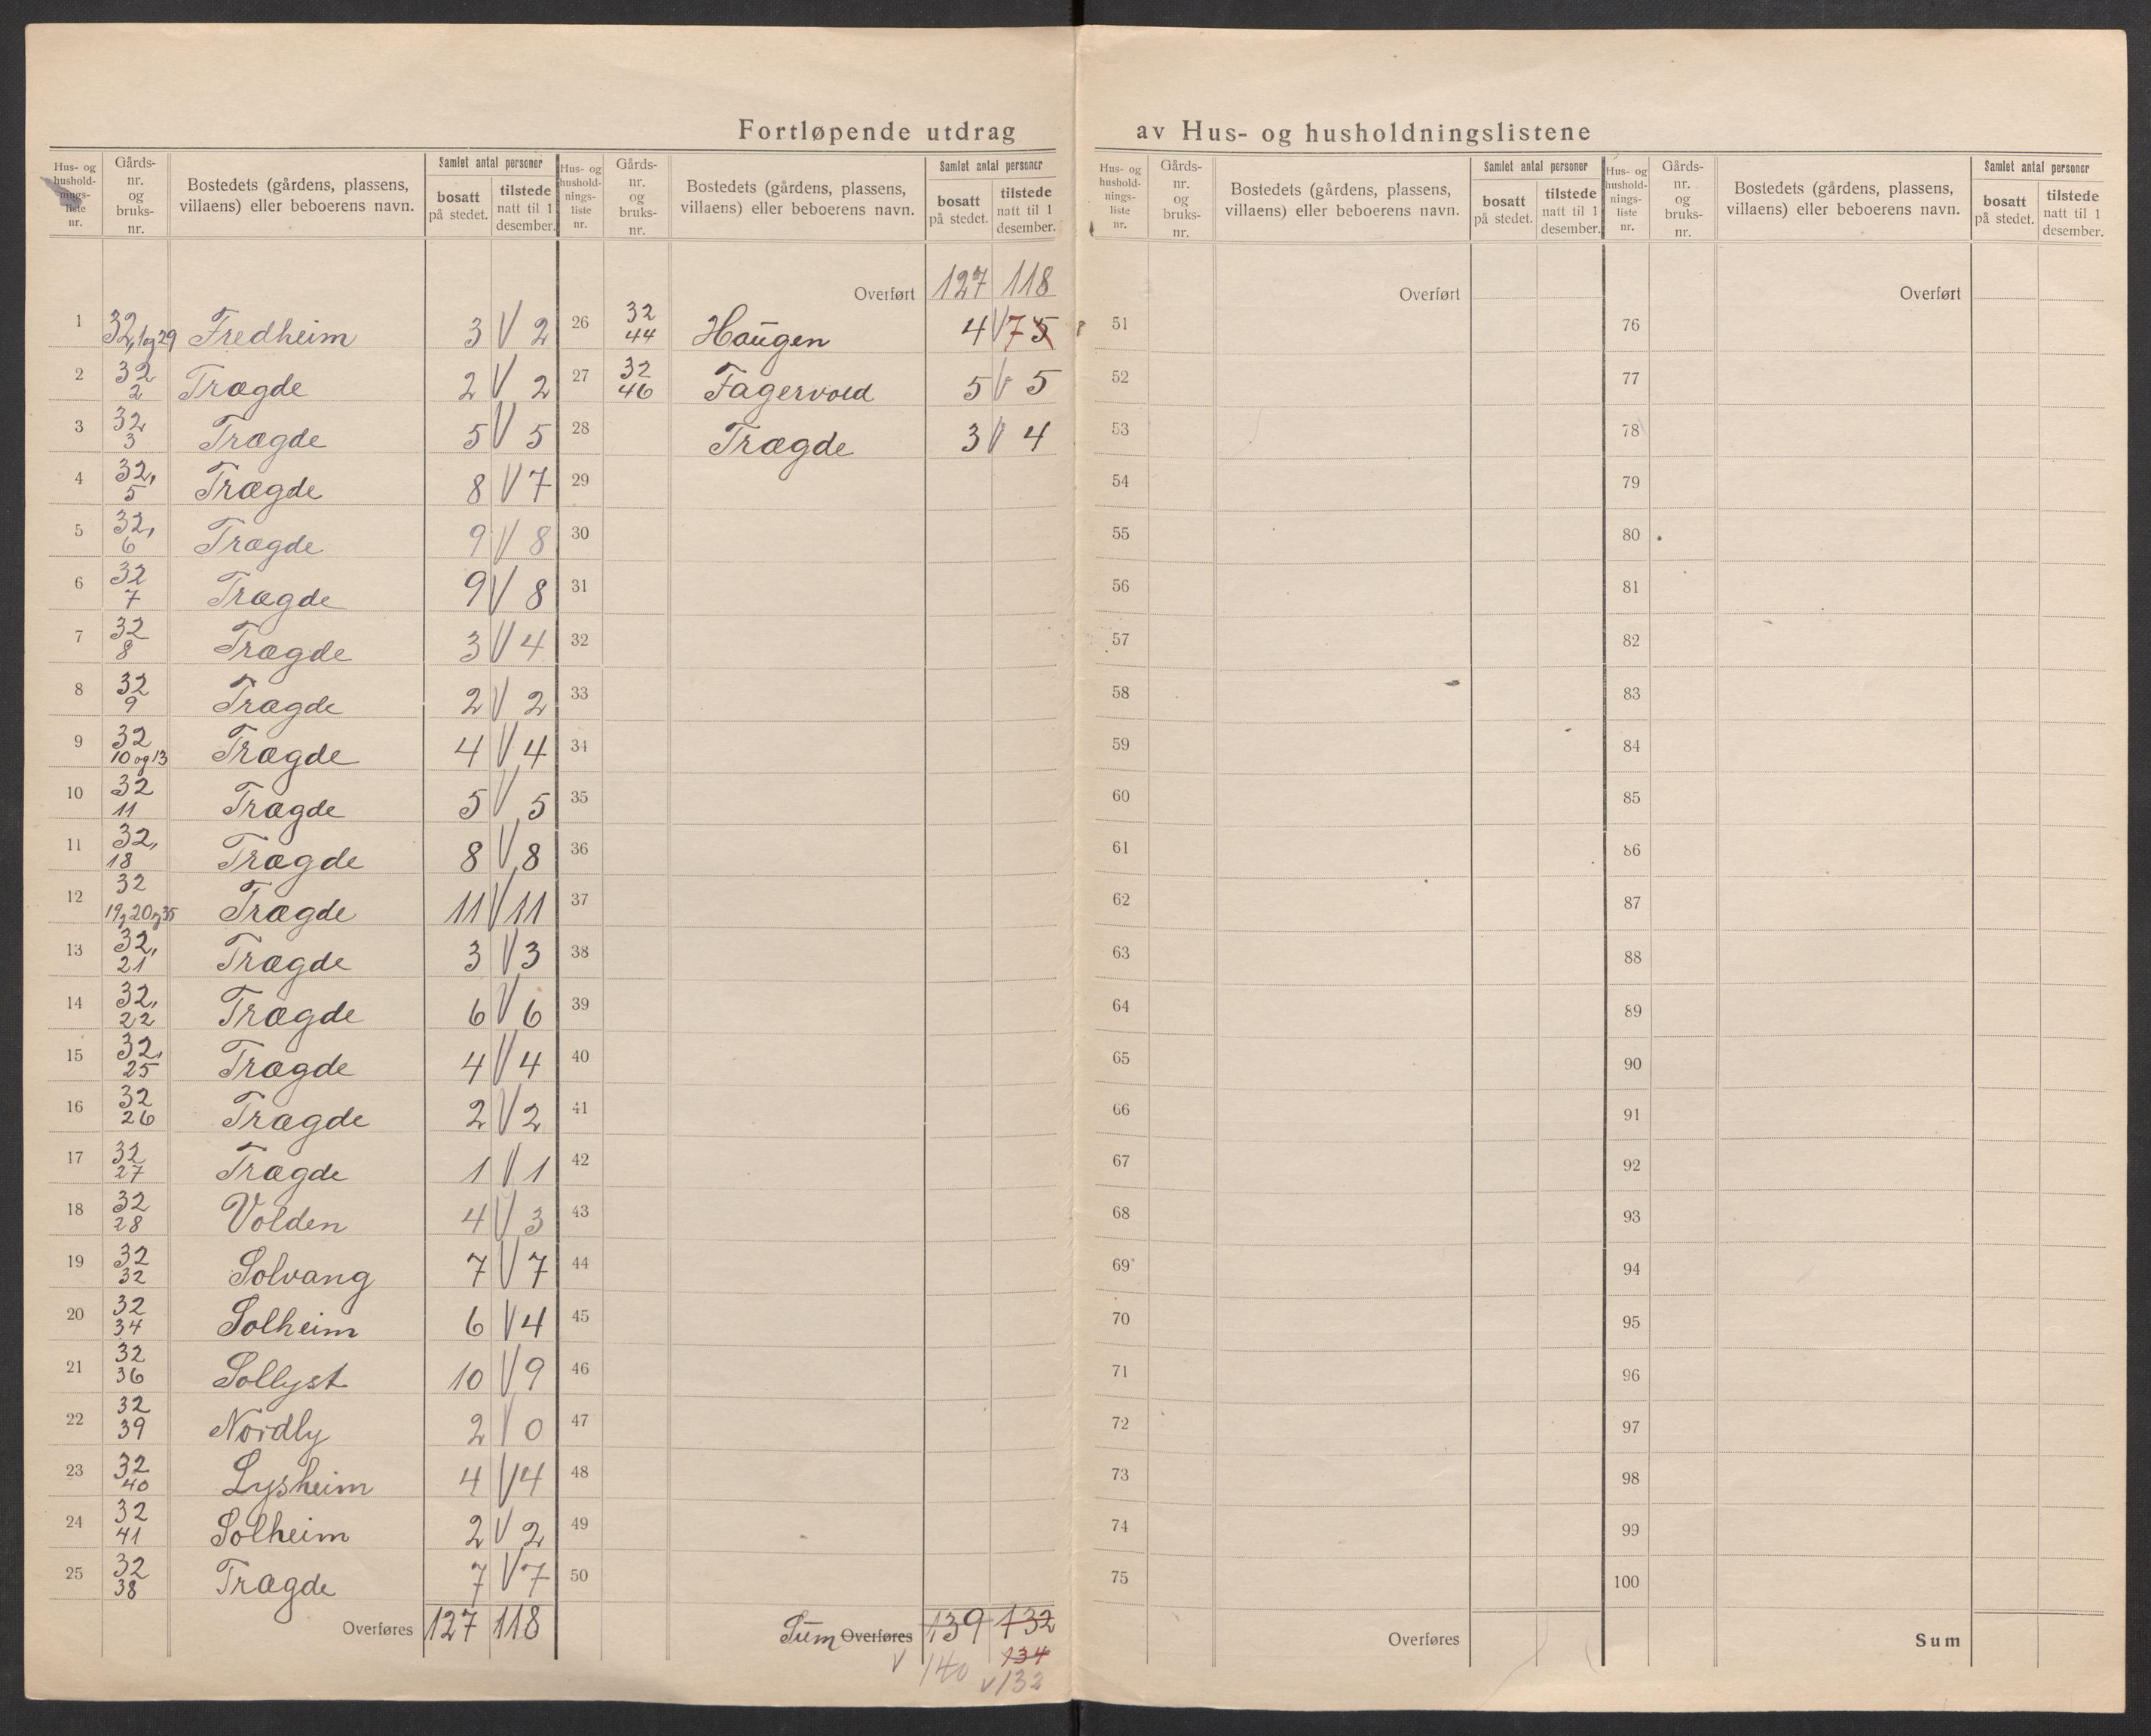 Fortløpende utdrag av Hus- og husholdningslistene
Hus- og hushold-nings-liste nr. | Gårds-nr. og bruks-nr. | Bostedets (gårdens, plassens, villaens) eller beboerens navn. | Samlet antal personer | bosatt på stedet. | tilstede natt til 1 desember.
1 32,1og29 Fredheim 3 V 2
2 32 2 Trægde 2 V 2
3 32 3 Trægde 5 V 5
4 32, 5 Trægde 8 V 7
5 32, 6 Trægde 9 V 8
6 32 7 Trægde 9 V 8
7 32 8 Trægde 3 V 4
8 32 9 Trægde 2 V 2
9 32 10 og 13 Trægde 4 V 4
10 32 11 Trægde 5 V 5
11 32, 18 Trægde 8 V 8
12 32 19,20,35 Trægde 11 V 11
13 32, 21 Trægde 3 V 3
14 32, 22 Trægde 6 V 6
15 32, 25 Trægde 4 V 4
16 32 26 Trægde 2 V 2
17 32 27 Trægde 1 V 1
18 32 28 Volden 4 V 3
19 32 32 Solvang 7 V 7
20 32 34 Solheim 6 V 4
21 32 36 Sollyst 10 V 9
22 32 39 Nordly 2 V 0
23 32 40 Lysheim 4 V 4
24 32 41 Solheim 2 V 2
25 32 38 Trægde 7 V 7
Overføres 127 118
Hus- og hushold-nings-liste nr. | Gårds-nr. og bruks-nr. | Bostedets (gårdens, plassens, villaens) eller beboerens navn. | Samlet antal personer | bosatt på stedet. | tilstede natt til 1 desember.
Overført 127 118
26 32 44 Haugen 4 V 7 5
27 32 46 Fagervold 5 V 5
28 Trægde 3 V 4
29
30
31
32
33
34
35
36
37
38
39
40
41
42
43
44
45
46
47
48
49
50
Sum Overføres 139 132
V 140 134
V 132
Hus- og hushold-nings-liste nr. | Gårds-nr. og bruks-nr. | Bostedets (gårdens, plassens, villaens) eller beboerens navn. | Samlet antal personer | bosatt på stedet. | tilstede natt til 1 desember.
Overført
51
52
53
54
55
56
57
58
59
60
61
62
63
64
65
66
67
68
69
70
71
72
73
74
75
Overføres
Hus- og hushold-nings-liste nr. | Gårds-nr. og bruks-nr. | Bostedets (gårdens, plassens, villaens) eller beboerens navn. | Samlet antal personer | bosatt på stedet. | tilstede natt til 1 desember.
Overført
76
77
78
79
80
81
82
83
84
85
86
87
88
89
90
91
92
93
94
95
96
97
98
99
100
Sum